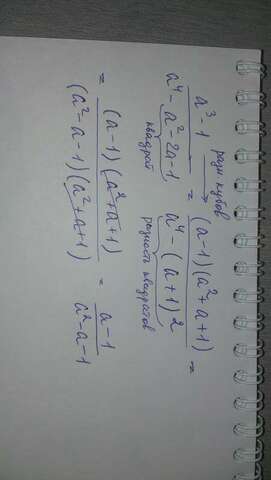 a³-1 разн кубов
a⁴-a²-2a-1 квадрат
= (a-1)(a²+a+1)
a⁴-(a+1)² разность квадратов
=
= (a-1)(a²+a+1)
(a²-a-1)(a²+a+1)
= a-1
a²-a-1